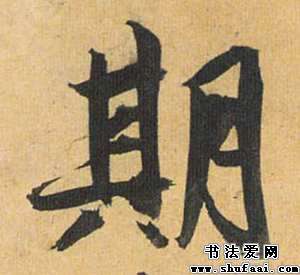 期
书法爱网
www.shufaai.com